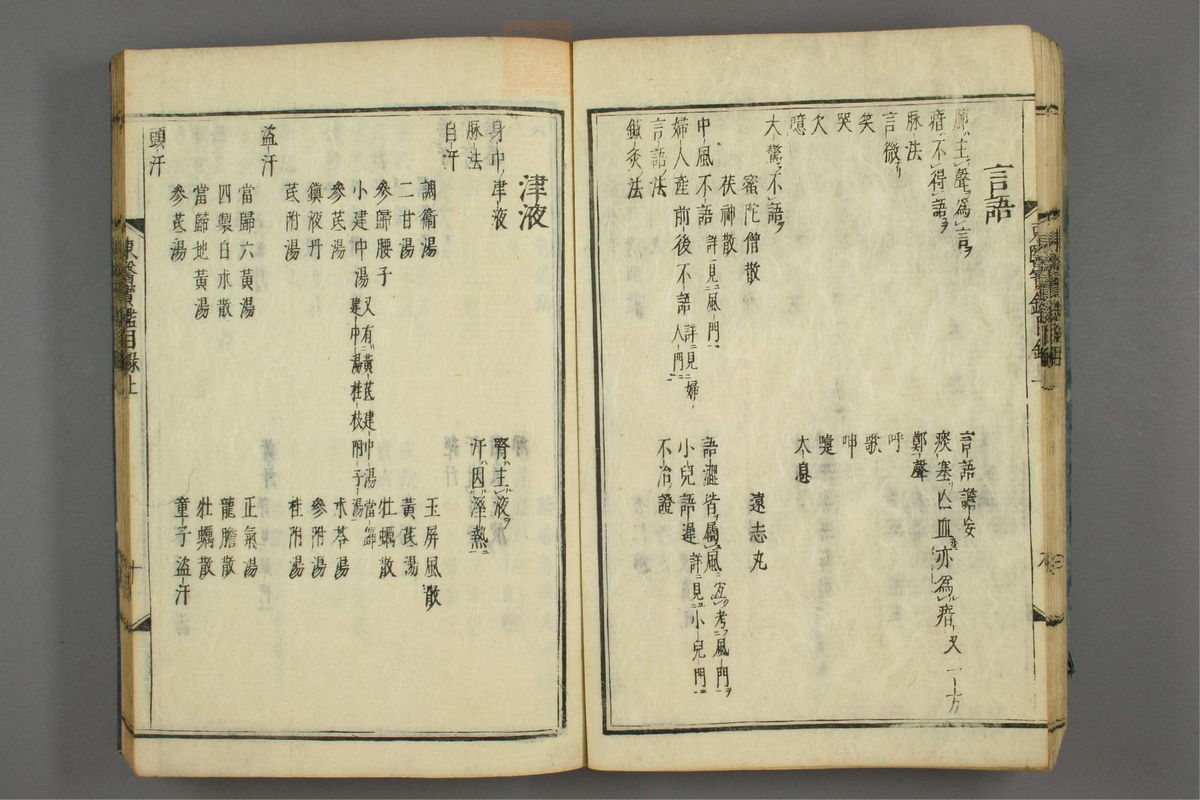 言語
肺主聲爲言
言語譫妄
瘖不得語
痰塞亡血亦爲瘖又一方
脉法
鄭聲
言微
呼
笑
歌
哭
呻
欠
嚏
噫
太息
大驚不語
蜜陀僧散
遠志丸
茯神散
中風不語詳見風門
語澀皆屬風宜考風門
婦人産前後不語詳見婦人門
小兒語遲詳見小兒門
言語法
不治證
鍼灸法
津液
身中津液
腎主液
脉法
汗因溼熱
自汗
調衛湯
玉屏風散
二甘湯
黃芪湯
參歸腰子
牡蠣散
小建中湯又有黃芪建中湯當歸建中湯桂枝附子湯
參芪湯
朮苓湯
鎭液丹
參附湯
芪附湯
桂附湯
盜汗
當歸六黃湯
正氣湯
四製白朮散
龍膽散
當歸地黃湯
牡蠣散
參芪湯
童子盜汗
頭汗
東醫寶鑑目錄上
十